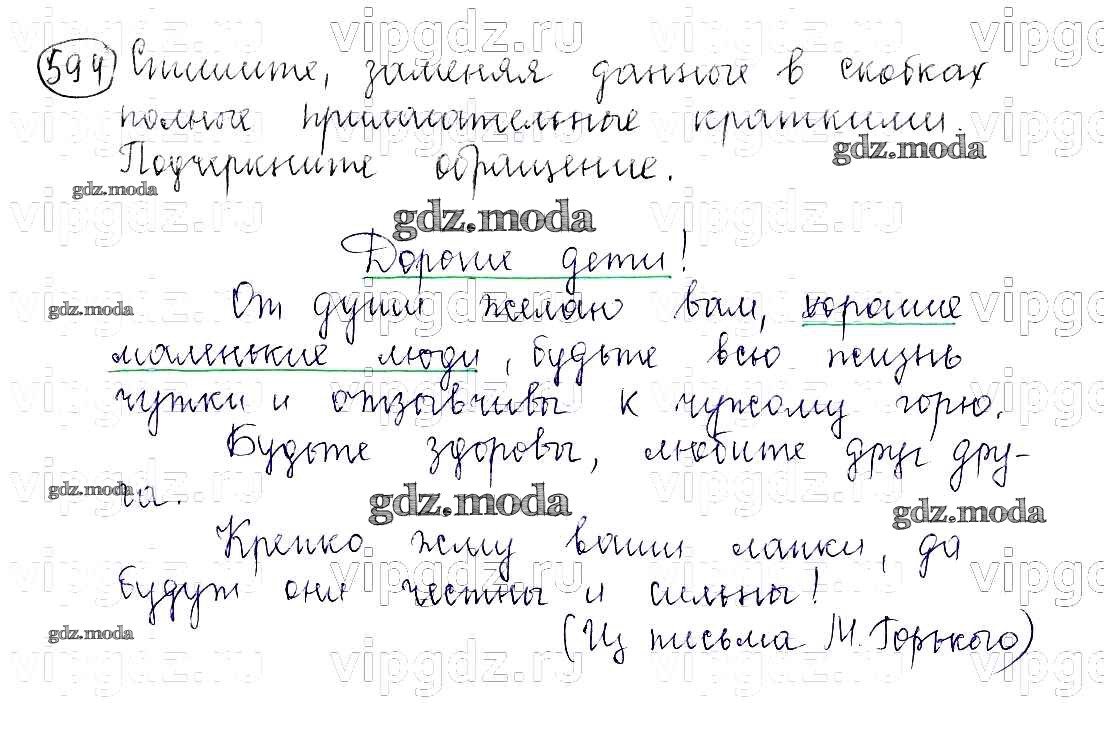 594 Спишите, заменяя данные в скобках
полные прилагательные краткими.
Подчеркните обращение.
Дорогие дети!
От души желаю вам, хорошие
маленькие люди, будьте всю жизнь
чутки и отзывчивы к чужому горю.
Будьте здоровы, любите друг дру-
га.
Крепко жму ваши лапки, да
будут они честны и сильны!
(Из письма М. Горького)
vipgdz.ru
gdz.moda